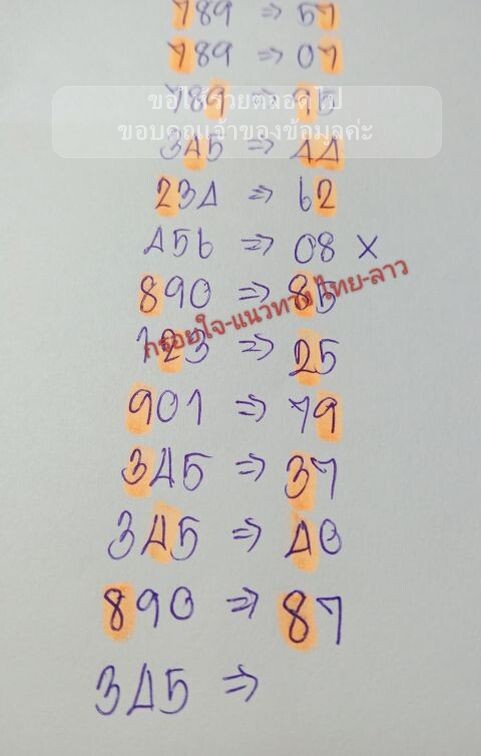 789 => 57
789 => 07
789 => 95
ขอให้รวยตลอดไป
ขอบคุณเจ้าของข้อมูลค่ะ
345 => 44
234 => 62
456 => 08 X
890 => 85
กรอยใจ-แนวทางไทย-ลาว
123 => 25
901 => 79
345 => 37
345 => 40
890 => 87
345 =>